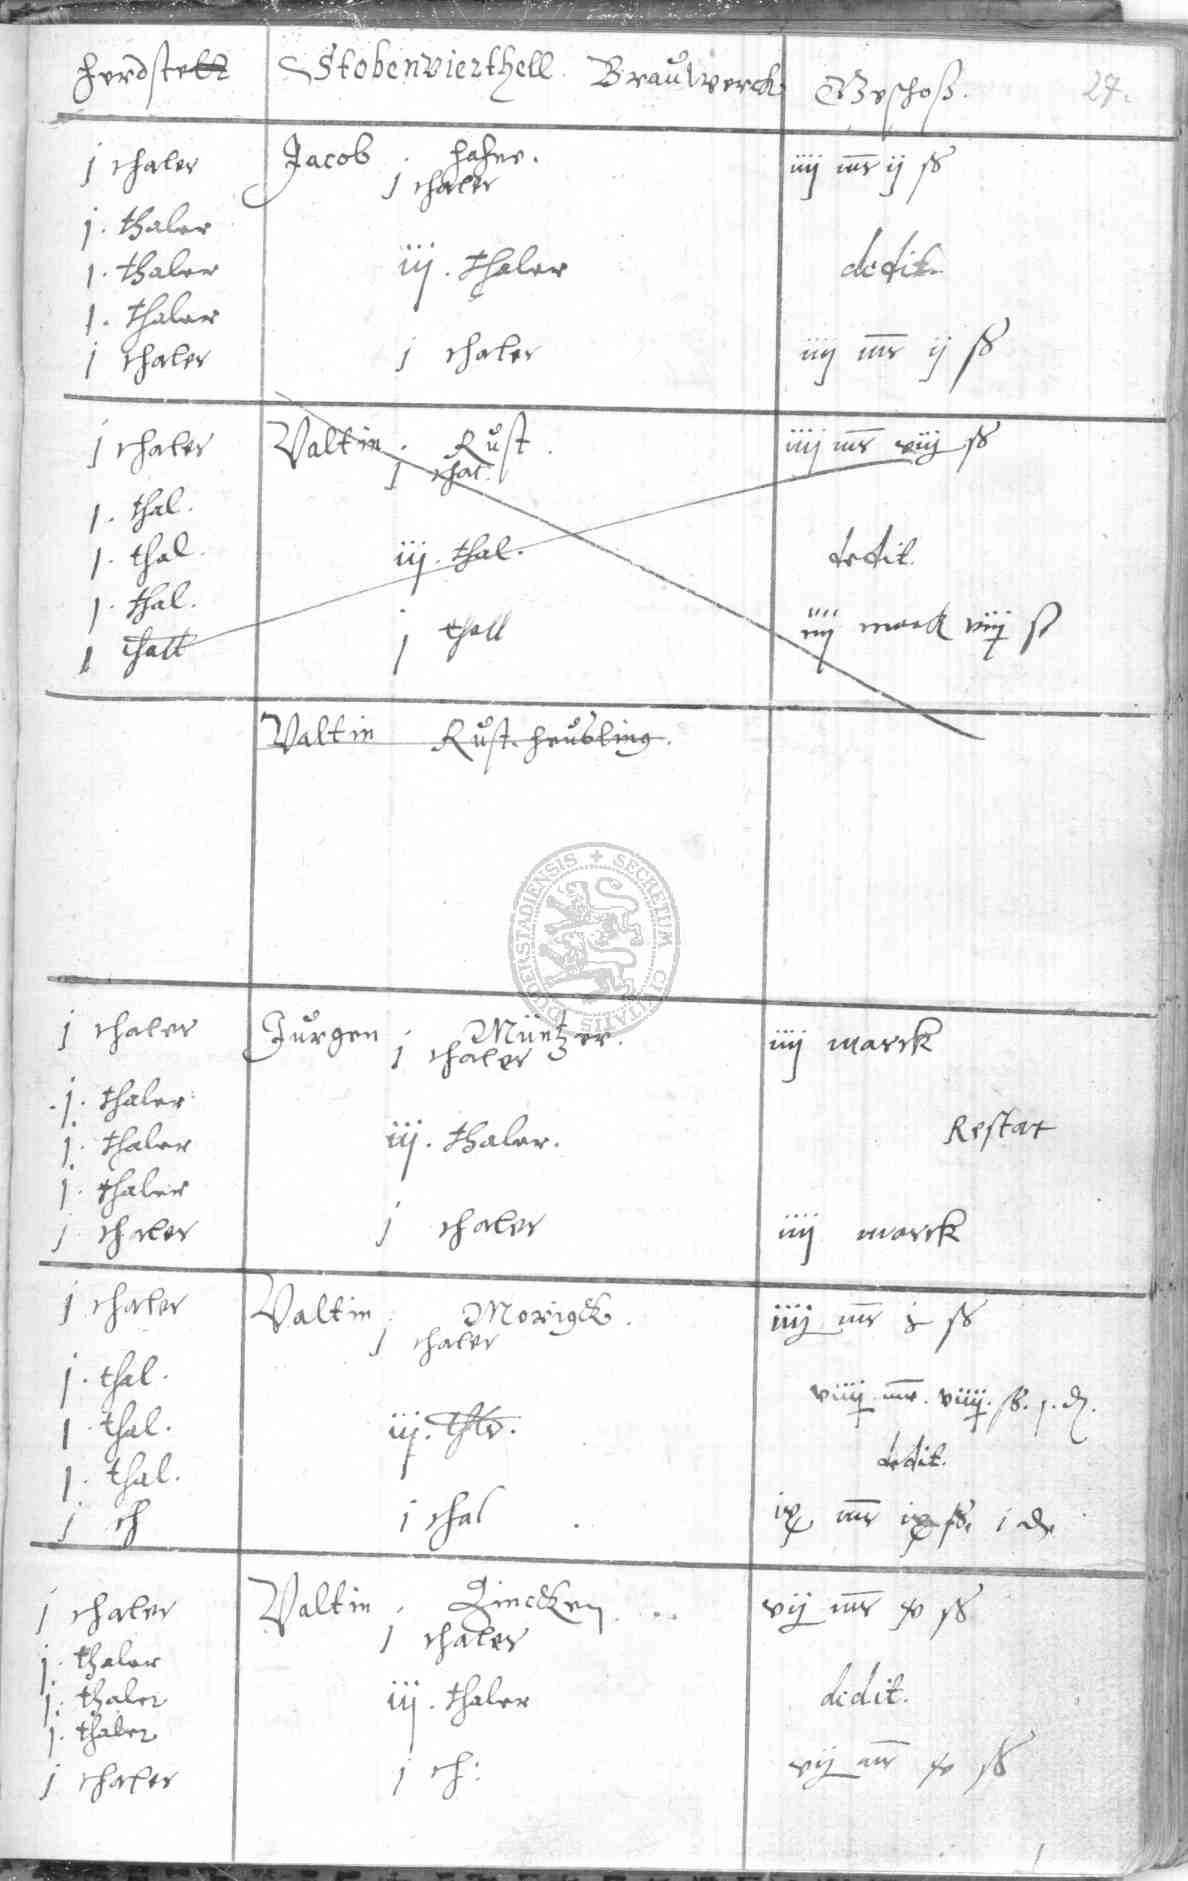 Herdstett Stobenvierthell Brauwerck Geschoß. 27.
j thaler Jacob . Haher. iiij mr ij ß
j thaler
j. thaler
j. thaler iij. thaler dedit
j. thaler
j thaler j thaler iiij mr ij ß
j thaler Valtin . Rust . iiij mr viij ß
j thal.
j. thal.
j. thal. iij. thal. dedit.
j. thal.
j thall j thall iiij marck viij ß
Valtin Rust heusling.
DUDERSTADIENSIS + SECRETUM CIVITATIS
j thaler Jurgen . Müntzer. iiij marck
j thaler
j. thaler
j. thaler iij. thaler. Restat
j. thaler
j thaler j thaler iiij marck
j thaler Valtin . Morigck . iiij mr j ß
j thaler
j. thal. viiij mr. viiij. ß. j. d.
j thal. iij. thlr. dedit.
j. thal.
j th j thal ix mr ix ß. j d
j thaler Valtin . Zincken vij mr xv ß
j thaler
j. thaler
j. thaler iij. thaler dedit.
j. thaler
j thaler j th: vij mr xv ß